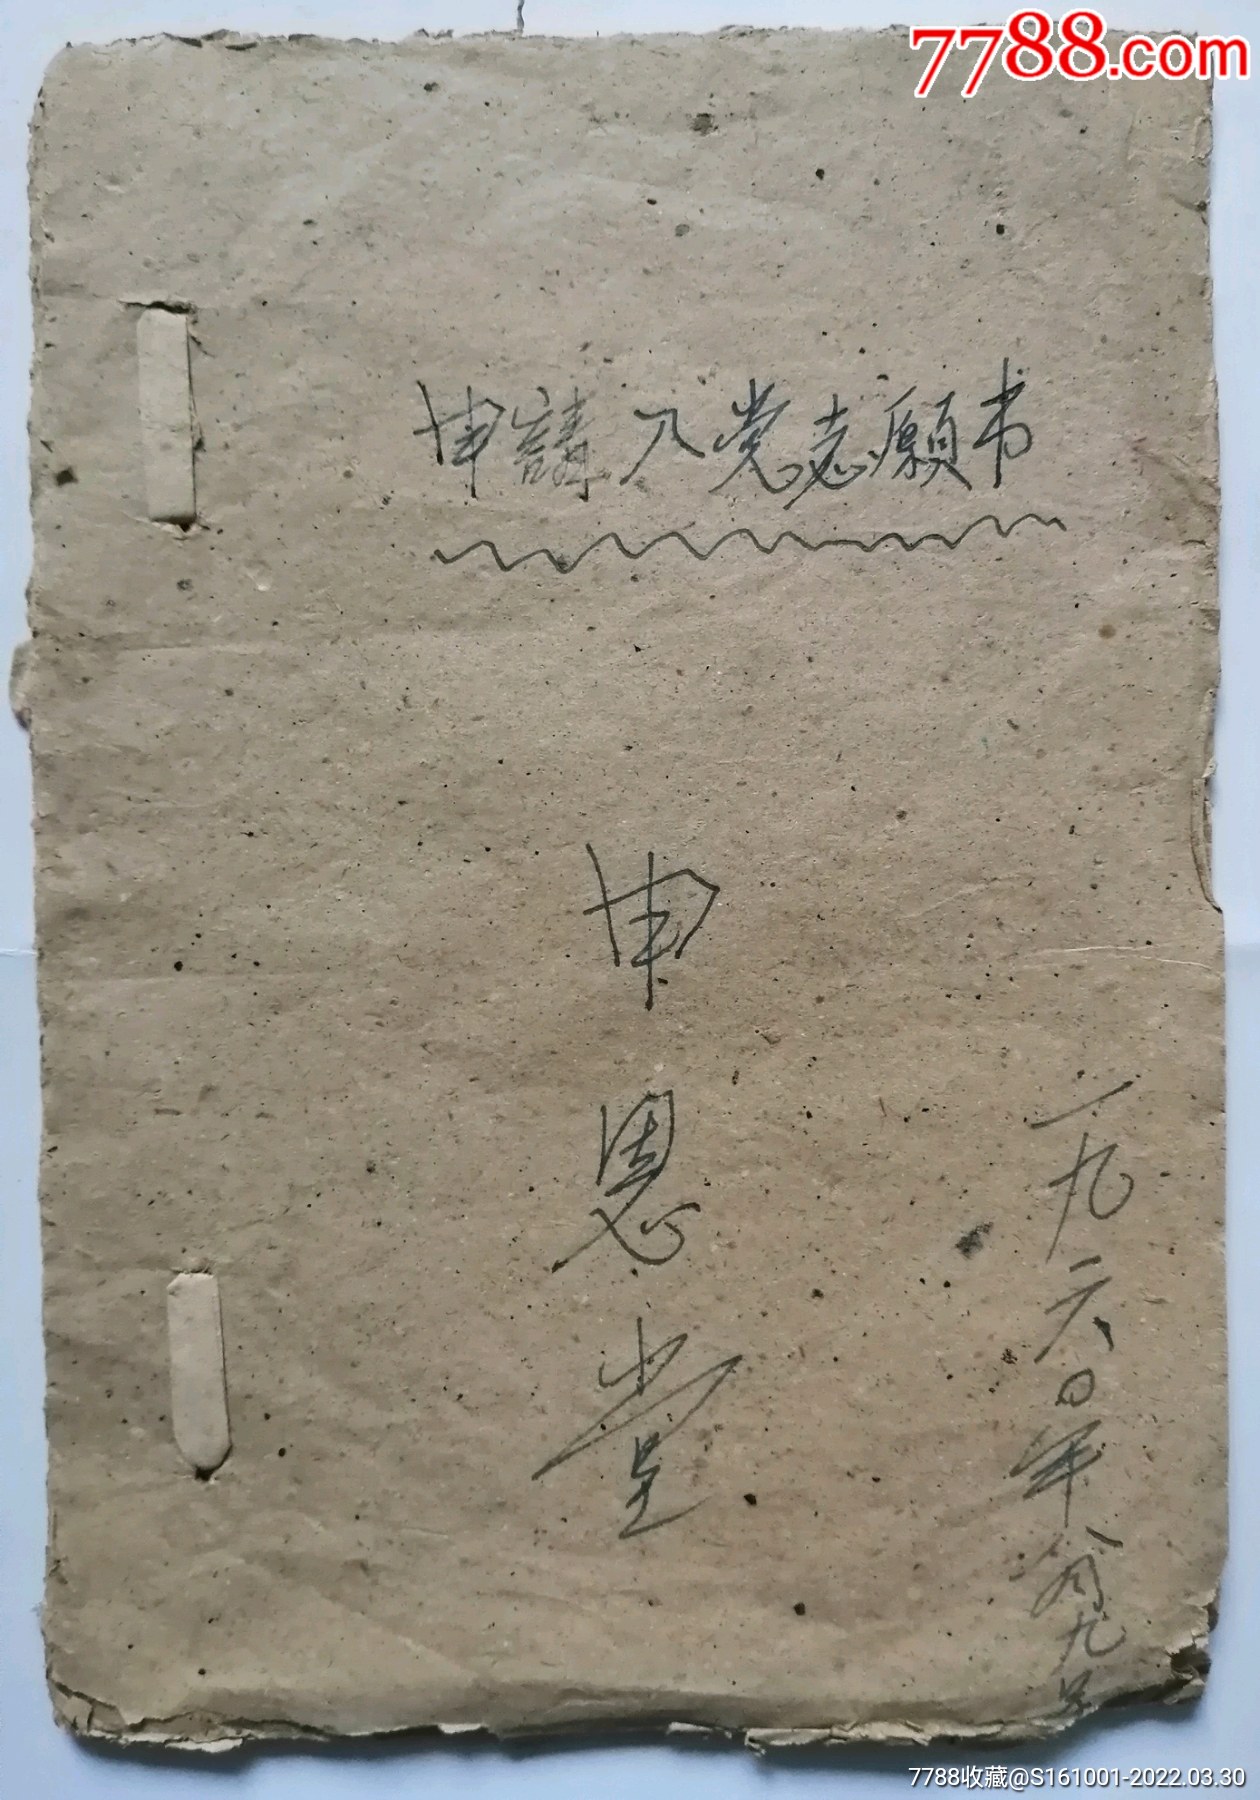 7788.com
申請入党志願书
申恩堂
一九六〇年八月九号
7788收藏@S161001-2022.03.30